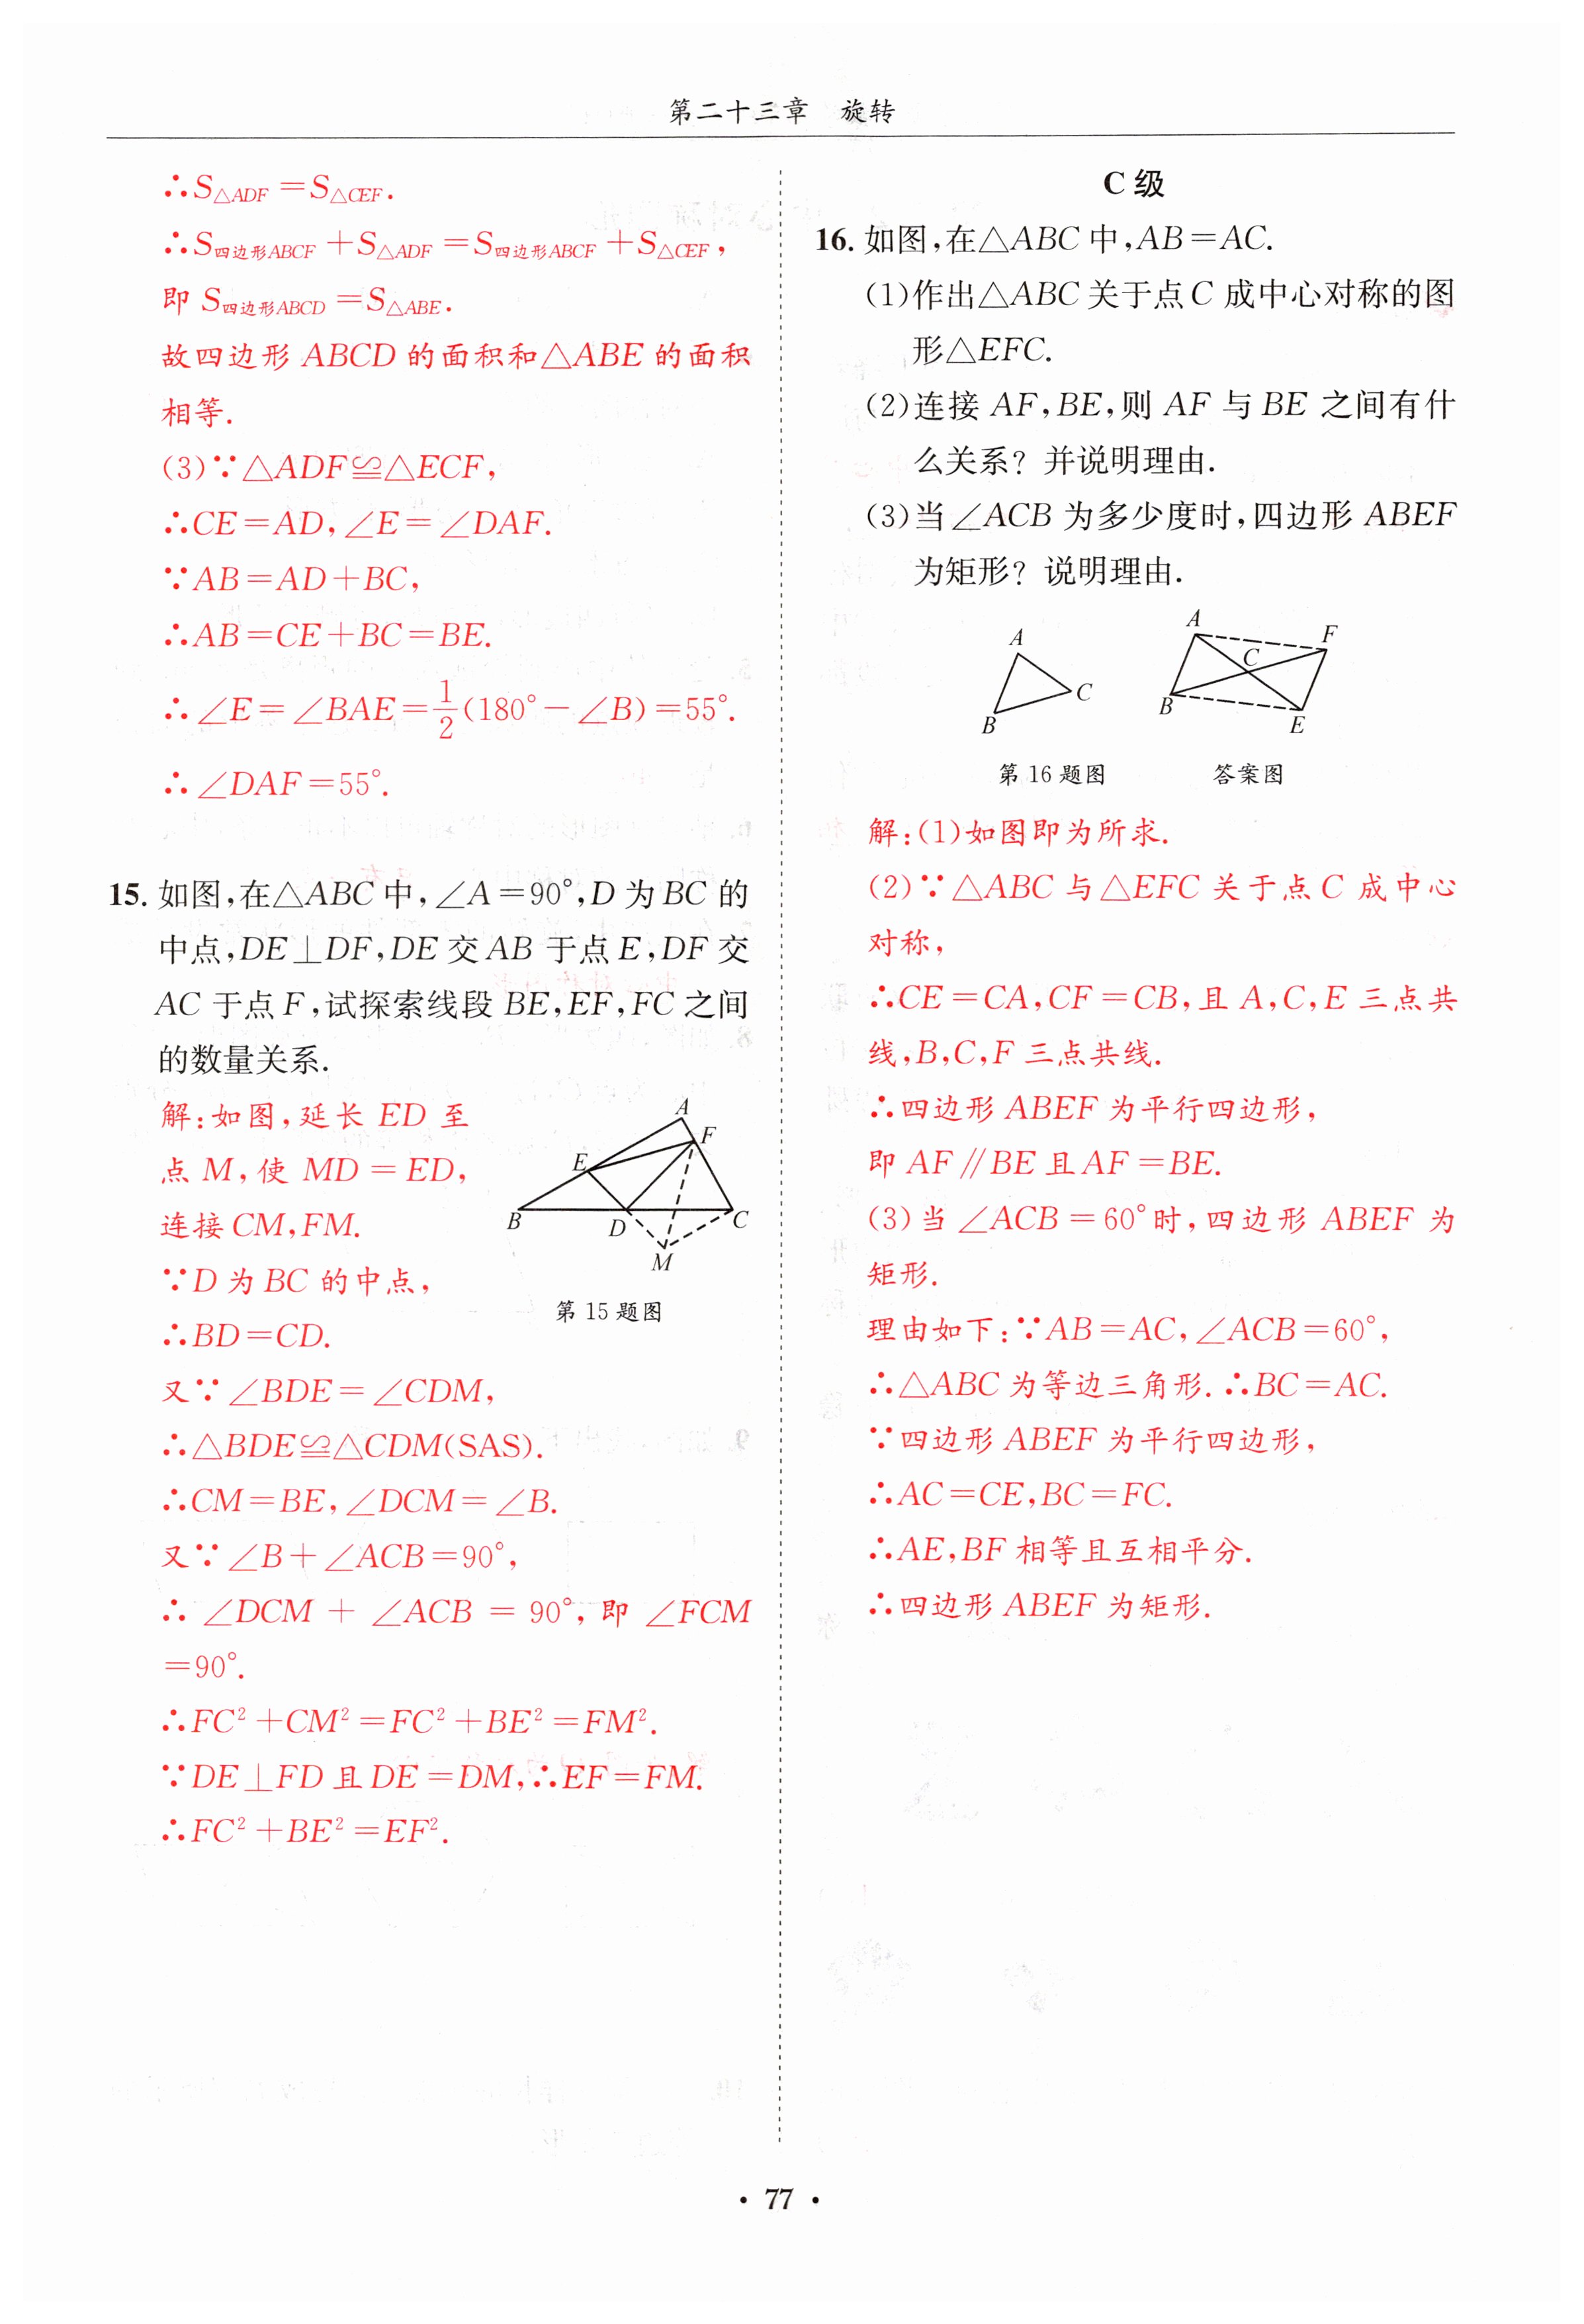 第二十三章 旋转
∴S△ADF=S△CEF.
∴S四边形ABCF+S△ADF=S四边形ABCF+S△CEF,
即 S四边形ABCD=S△ABE.
故四边形 ABCD 的面积和△ABE 的面积
相等.
(3)∵△ADF≌△ECF,
∴CE=AD,∠E=∠DAF.
∵AB=AD+BC,
∴AB=CE+BC=BE.
∴∠E=∠BAE=1/2(180°-∠B)=55°.
∴∠DAF=55°.
15. 如图,在△ABC 中,∠A=90°,D 为 BC 的
中点,DE⊥DF,DE 交 AB 于点 E,DF 交
AC 于点 F,试探索线段 BE,EF,FC 之间
的数量关系.
解:如图,延长 ED 至
点 M,使 MD=ED,
连接 CM,FM.
∵D 为 BC 的中点,
∴BD=CD.
A
F
E
B
D
C
M
第 15 题图
又∵∠BDE=∠CDM,
∴△BDE≌△CDM(SAS).
∴CM=BE,∠DCM=∠B.
又∵∠B+∠ACB=90°,
∴∠DCM+∠ACB=90°,即∠FCM
=90°.
∴FC²+CM²=FC²+BE²=FM².
∵DE⊥FD 且 DE=DM,∴EF=FM.
∴FC²+BE²=EF².
C 级
16. 如图,在△ABC 中,AB=AC.
(1)作出△ABC 关于点 C 成中心对称的图
形△EFC.
(2)连接 AF,BE,则 AF 与 BE 之间有什
么关系? 并说明理由.
(3)当∠ACB 为多少度时,四边形 ABEF
为矩形? 说明理由.
A
C
B
第 16 题图
A
F
C
B
E
答案图
解:(1)如图即为所求.
(2)∵△ABC 与△EFC 关于点 C 成中心
对称,
∴CE=CA,CF=CB,且 A,C,E 三点共
线,B,C,F 三点共线.
∴四边形 ABEF 为平行四边形,
即 AF∥BE 且 AF=BE.
(3)当∠ACB=60°时,四边形 ABEF 为
矩形.
理由如下:∵AB=AC,∠ACB=60°,
∴△ABC 为等边三角形.∴BC=AC.
∵四边形 ABEF 为平行四边形,
∴AC=CE,BC=FC.
∴AE,BF 相等且互相平分.
∴四边形 ABEF 为矩形.
· 77 ·